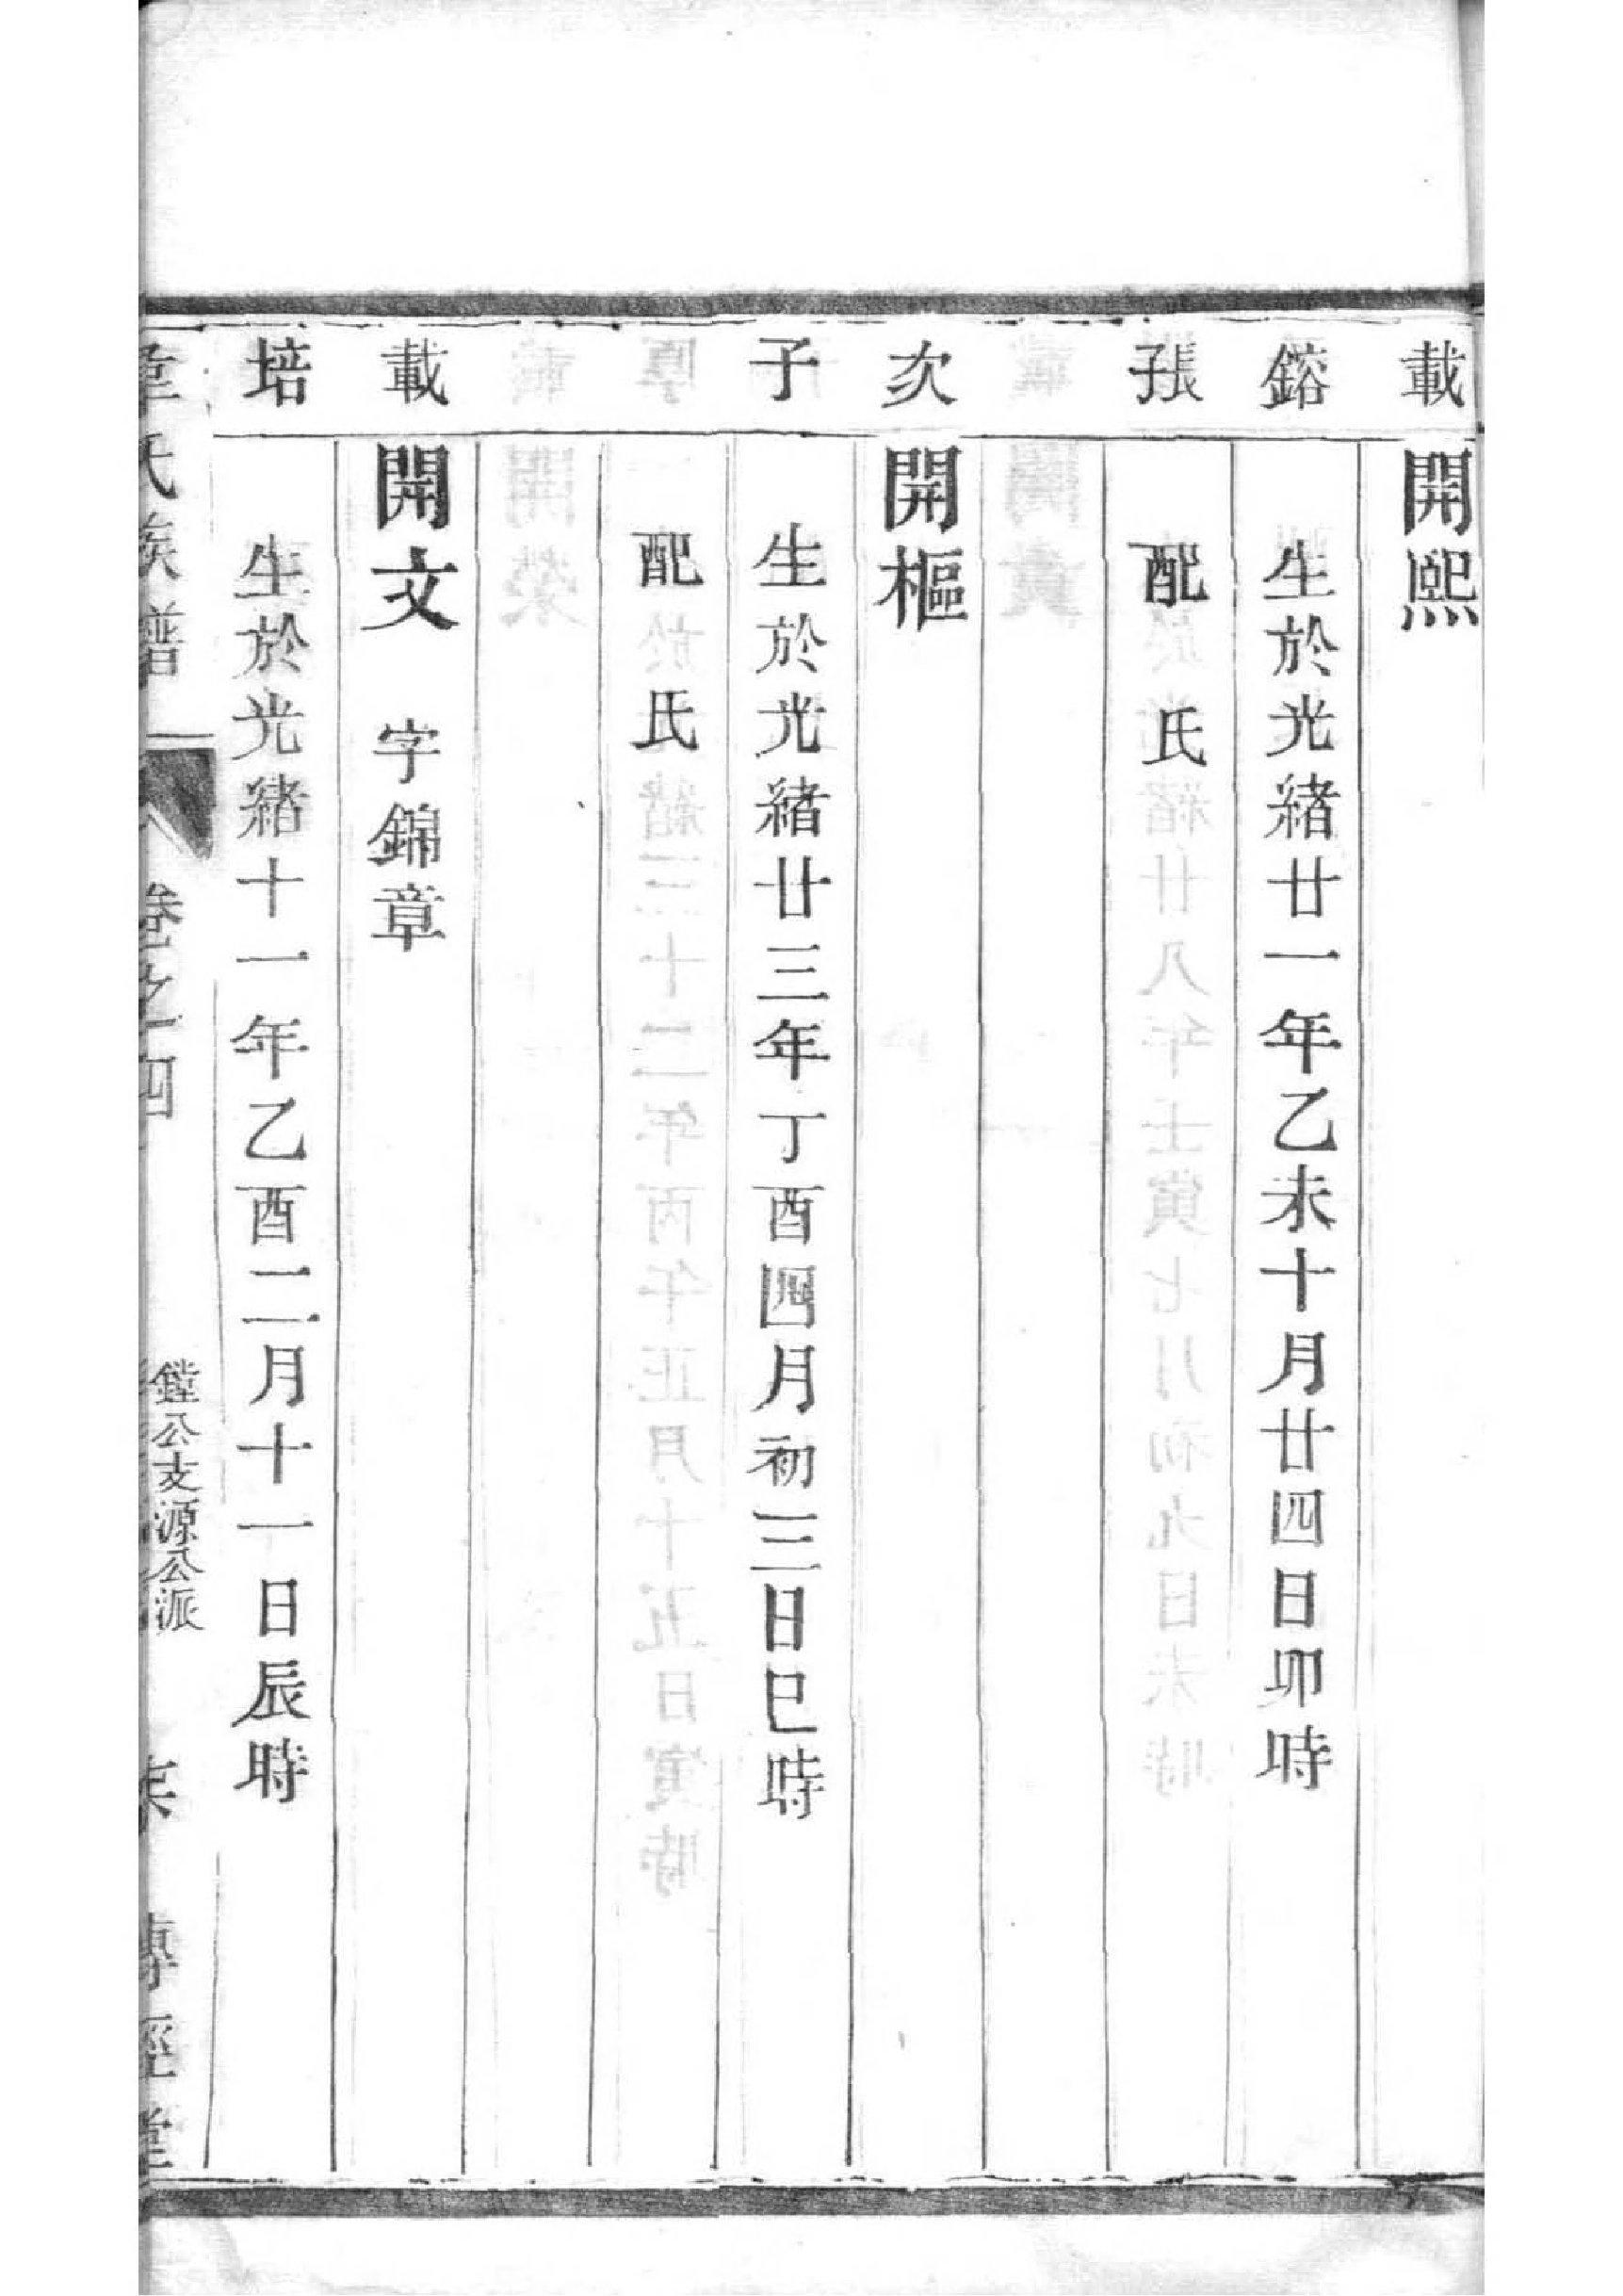 載 開熙
鎔 生於光緒廿一年乙未十月廿四日卯時
張子 配 氏
次 開樞
子 生於光緒廿三年丁酉四月初三日巳時
配 氏
載 開文 字錦章
培 生於光緒十一年乙酉二月十一日辰時
氏族譜 卷之四 鏜公支源公派 傳經堂